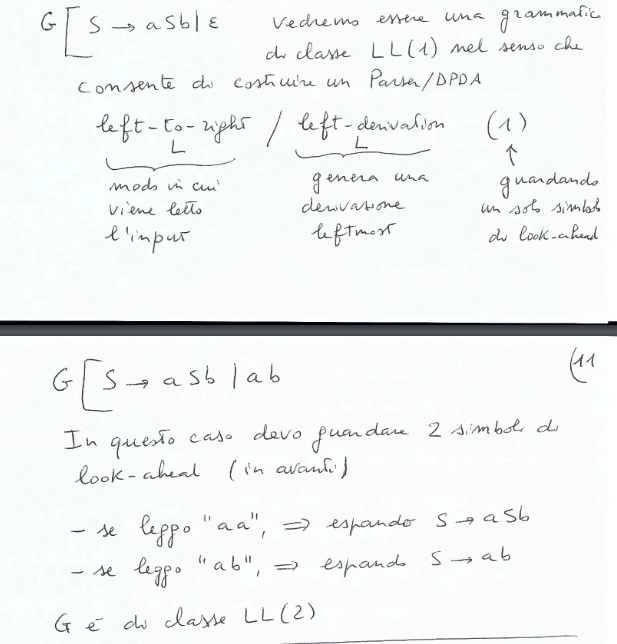 G [ S → aSb | ε vedremo essere una grammatica
di classe LL(1) nel senso che
consente di costruire un Parser/DPDA
left-to-right / left-derivation (1)
L L ↑
modo in cui genera una guardando
viene letto derivazione un solo simbolo
l'input leftmost di look-ahead
(11
G [ S → aSb | ab
In questo caso devo guardare 2 simboli di
look-ahead (in avanti)
- se leggo "aa", ⇒ espando S → aSb
- se leggo "ab", ⇒ espando S → ab
G è di classe LL(2)